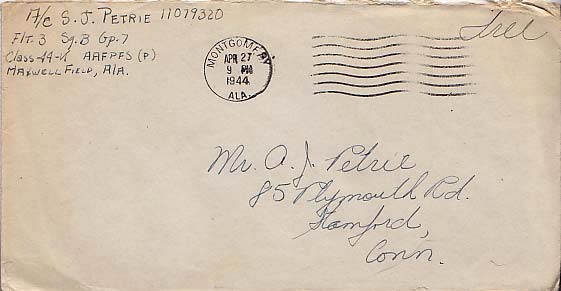 A/C S. J. PETRIE 11079320
FLT. 3 Sq. B Gp. 7
Class 44-K AAFPFS (P)
MAXWELL FIELD, ALA.
Free
MONTGOMERY
APR 27
9 PM
1944
ALA.
Mr. A. J. Petrie
85 Plymouth Rd.
Stamford,
Conn.